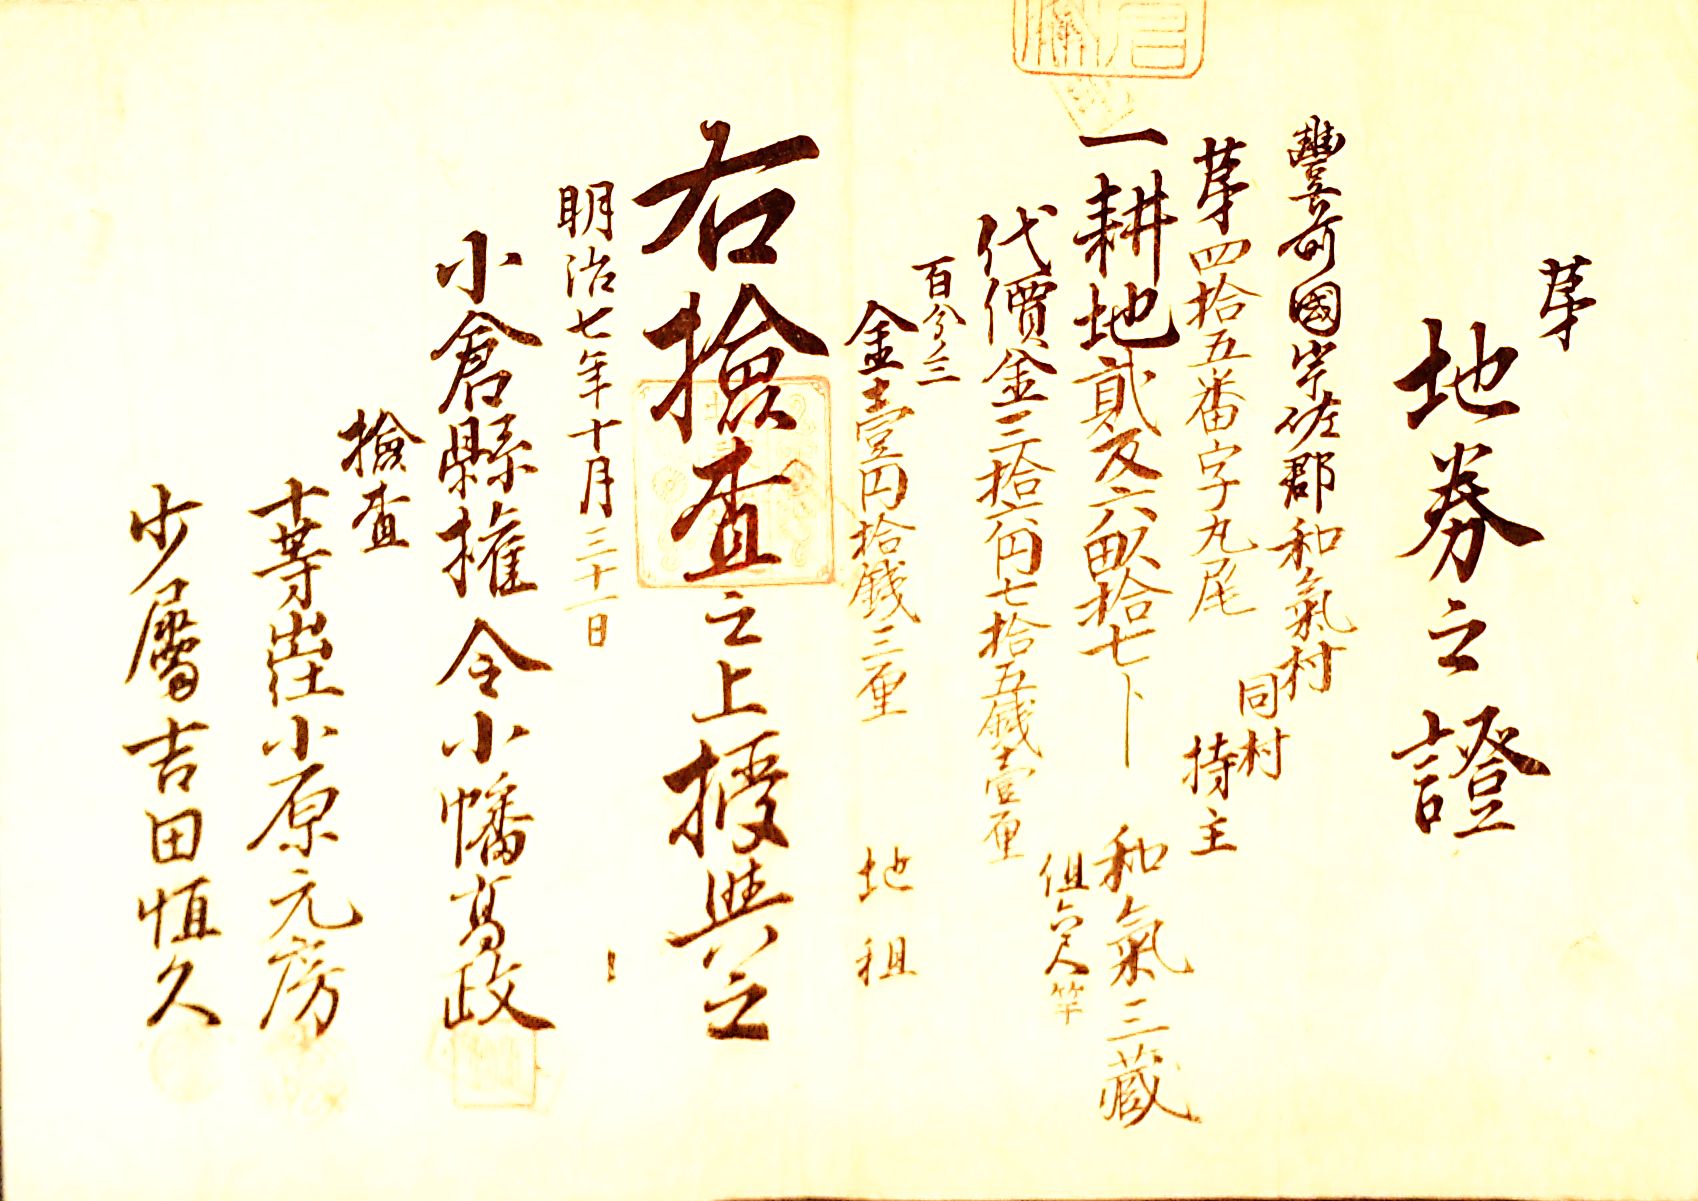 第
地券之證
豐前國宇佐郡和氣村
第四拾五番字丸尾
同村
持主
一耕地貳反六畝拾七卜
和氣三藏
但六尺竿
代價金三拾六円七拾五錢壹厘
百分三
金壹円拾錢三厘
地租
右撿査之上授與之
明治七年十月三十一日
小倉縣權令小幡高政
撿査
十等出仕小原元房
少属吉田恒久